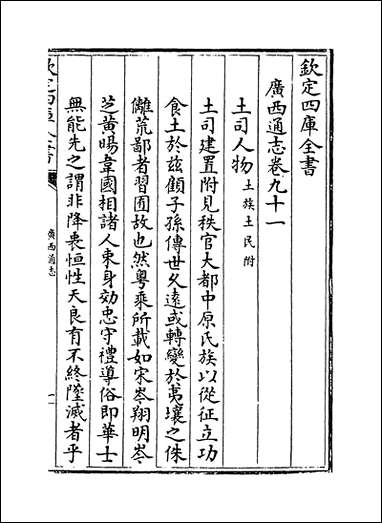 欽定四庫全書
廣西通志卷九十一
土司人物土族土民附
土司建置附見秩官大都中原氏族以從征立功
食土於兹顧子孫傳世久遠或轉變於夷壤之侏
𠌯荒鄙者習囿故也然粤乘所載如宋岑翔明岑
芝黄暘韋國相諸人束身効忠守禮導俗即華士
無能先之謂非降衷恒性天良有不終墜滅者乎
欽定四庫全書
廣西通志
一